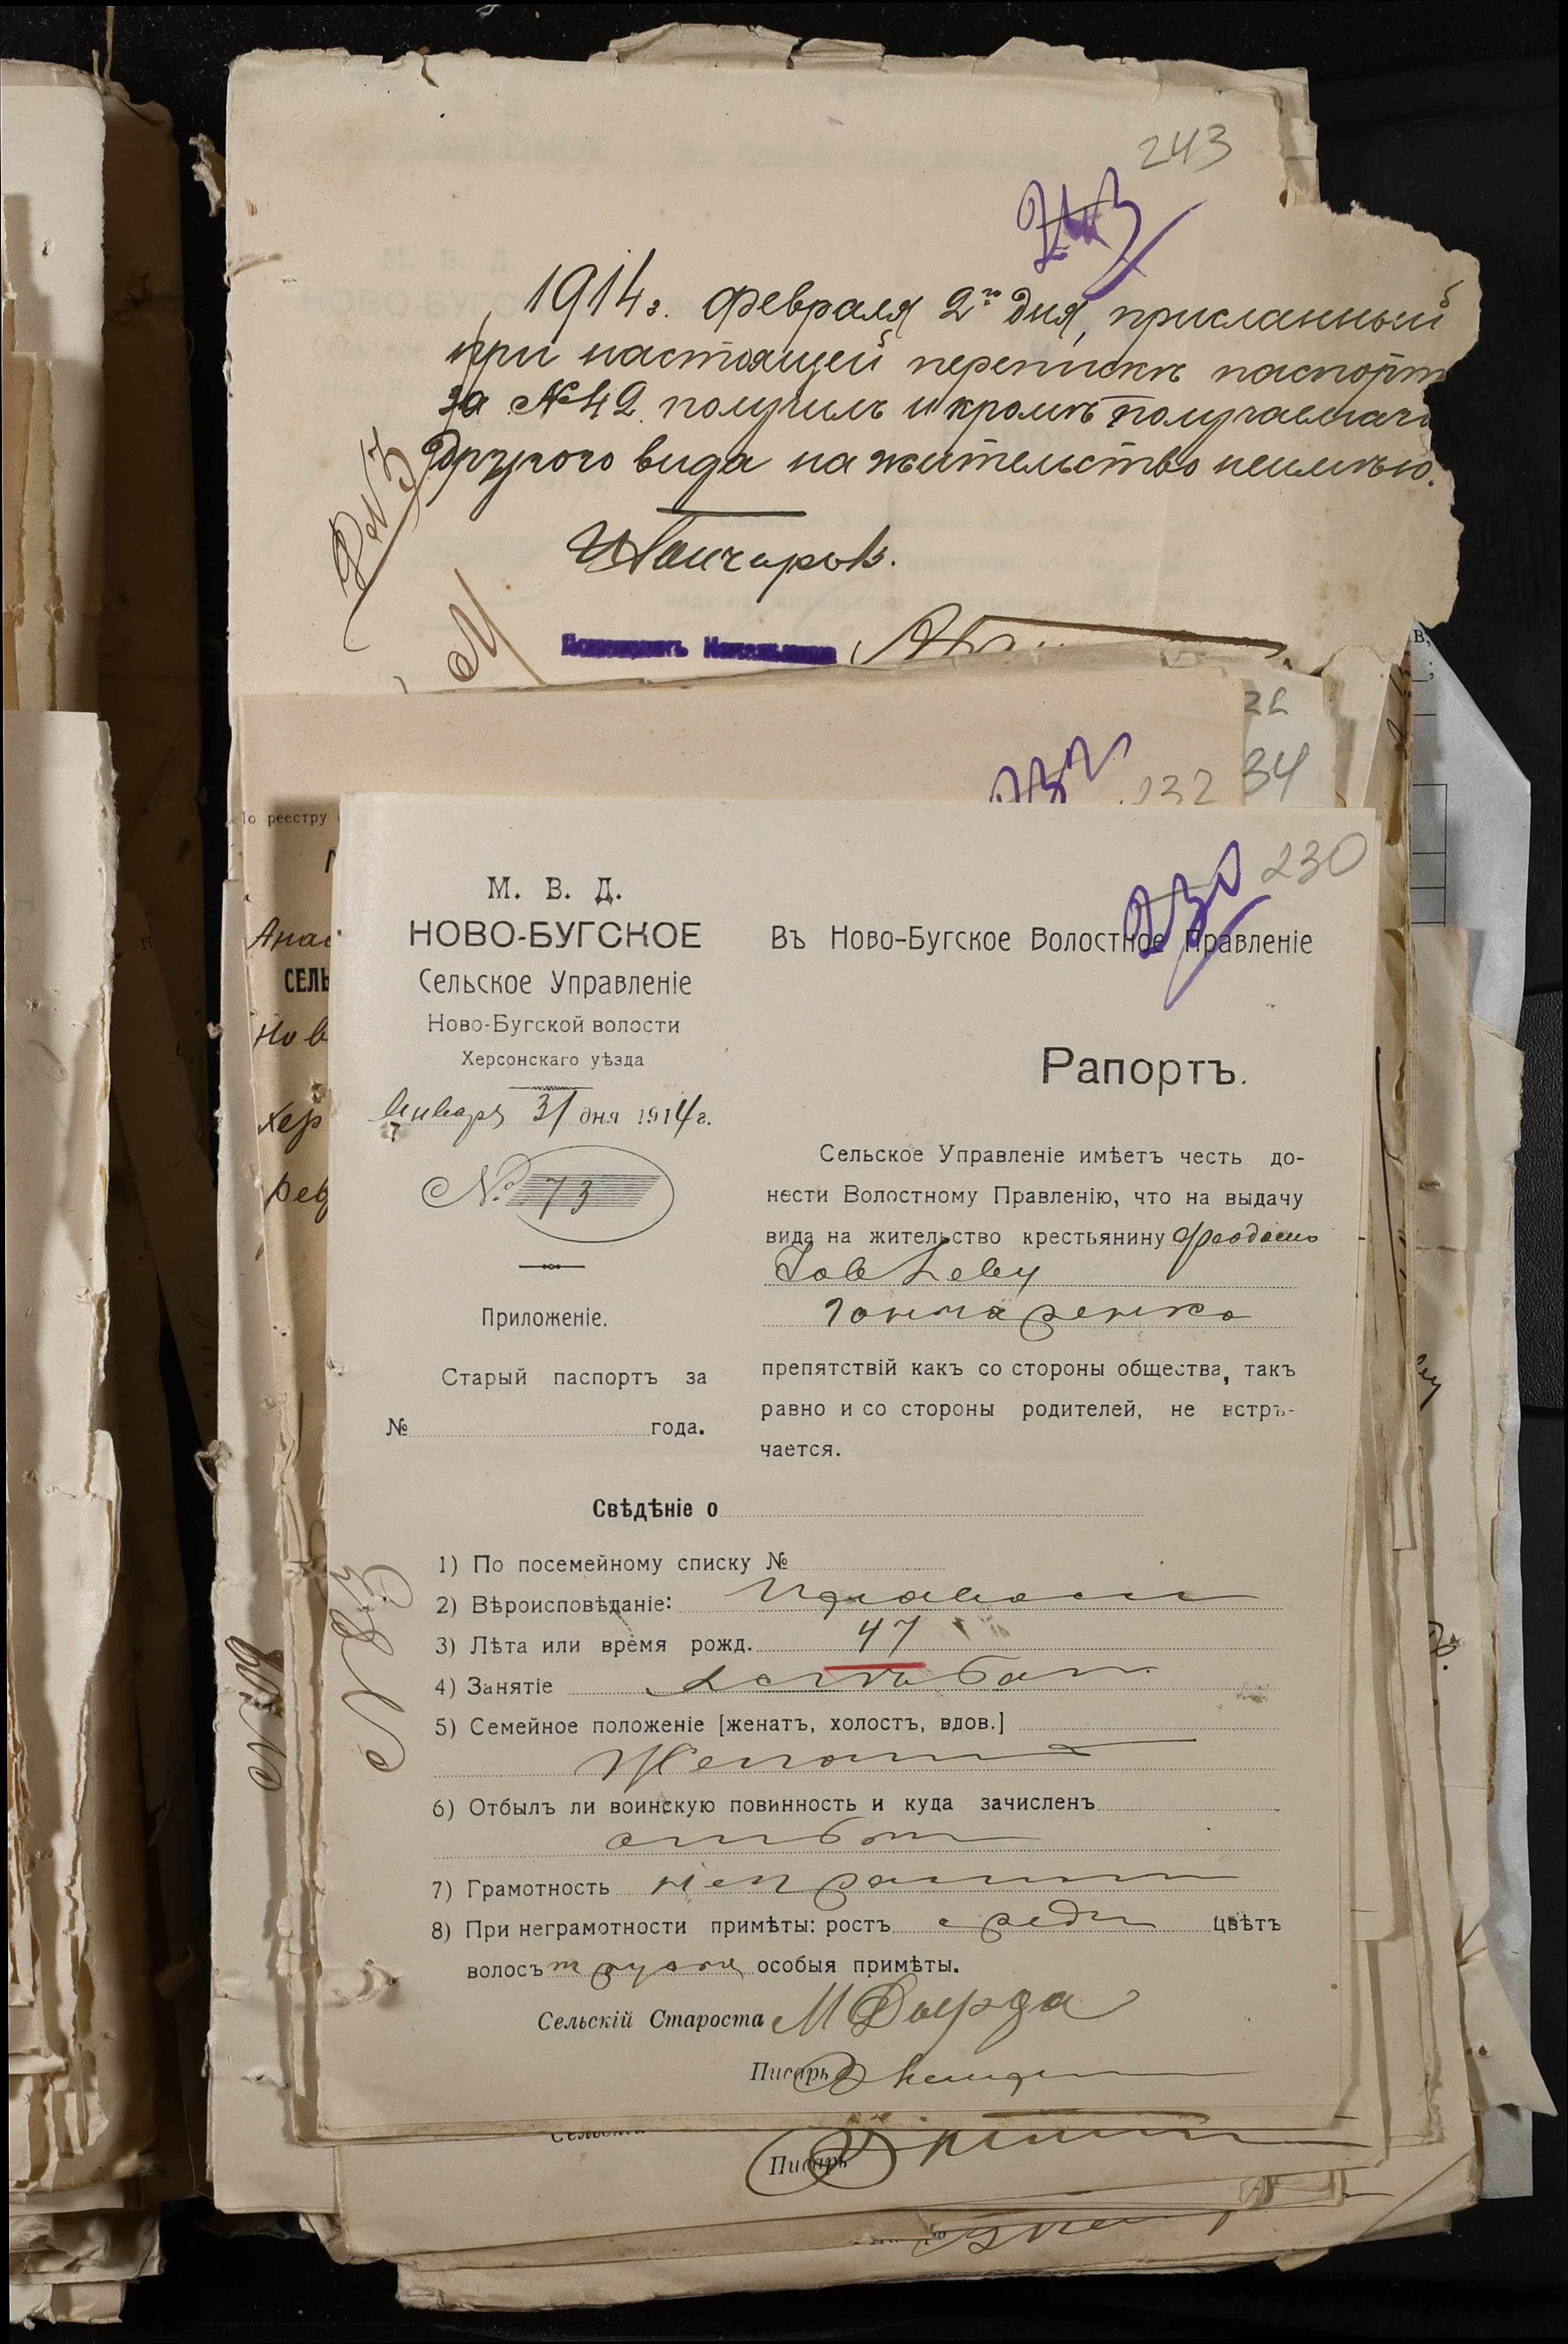 243
243
1914 г. февраля 2го дня, присланный
при настоящей перепискѣ паспортъ
за № 42 получилъ и кромѣ получаемаго
другого вида на жительство неимѣю.
22
34
232
232
230
230
По реестру
СЕЛЬ
Нов
Хер
М. В. Д.
НОВО-БУГСКОЕ
Сельское Управленіе
Ново-Бугской волости
Херсонскаго уѣзда
Января 31 дня 1914 г.
№ 73
Приложеніе.
Старый паспортъ за
№ года.
Въ Ново-Бугское Волостное Правленіе
Рапортъ.
Сельское Управленіе имѣетъ честь до-
нести Волостному Правленію, что на выдачу
вида на жительство крестьянину Феодосію
Гончаренко
препятствій какъ со стороны общества, такъ
равно и со стороны родителей, не встрѣ-
чается.
Свѣдѣніе о
1) По посемейному списку №
2) Вѣроисповѣданіе: Православн
3) Лѣта или время рожд. 47
4) Занятіе хлѣбоп.
5) Семейное положеніе [женатъ, холостъ, вдов.]
Женатъ
6) Отбылъ ли воинскую повинность и куда зачисленъ
7) Грамотность неграмотн
8) При неграмотности примѣты: ростъ средн цвѣтъ
волосъ т русый особыя примѣты.
Сельскій Староста
Писарь
Писарь